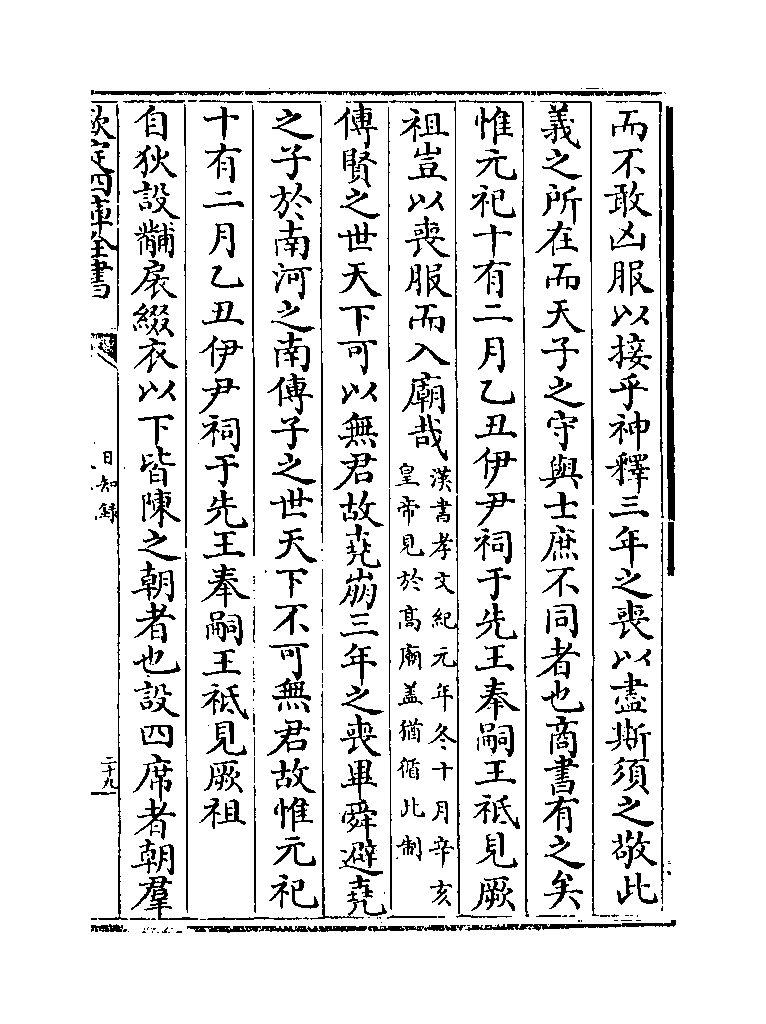 而不敢凶服以接乎神釋三年之喪以盡斯須之敬此
義之所在而天子之守與士庶不同者也商書有之矣
惟元祀十有二月乙丑伊尹祠于先王奉嗣王祗見厥
祖豈以喪服而入廟哉漢書孝文紀元年冬十月辛亥
皇帝見於髙廟盖猶循此制
傳賢之世天下可以無君故堯崩三年之喪畢舜避堯
之子於南河之南傳子之世天下不可無君故惟元祀
十有二月乙丑伊尹祠于先王奉嗣王祗見厥祖
自狄設黼扆綴衣以下皆陳之朝者也設四席者朝羣
欽定四庫全書
日知錄
二十九